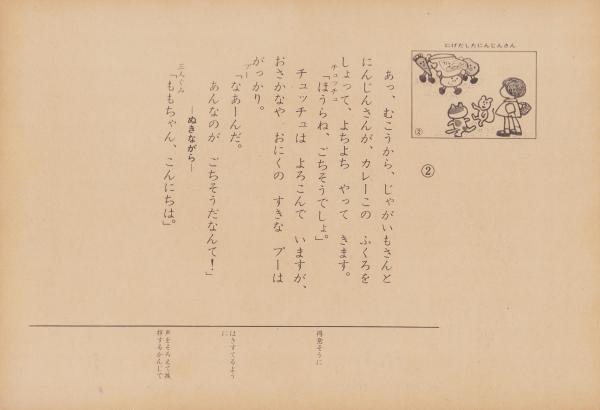 にげだしたにんじんさん
②
②
あっ、むこうから、じゃがいもさんと
にんじんさんが、カレーこの ふくろを
しょって、よちよち やって きます。
チュッチュ
「ほうらね、ごちそうでしょ」。
チュッチュは よろこんで いますが、
おさかなや おにくの すきな プーは
がっかり。
プー
「なあーんだ。
あんなのが ごちそうだなんて！」
―ぬきながら―
三人ぐみ
「ももちゃん、こんにちは」。
得意そうに
はきすてるよう
に
声をそろえて挨
拶するかんじで